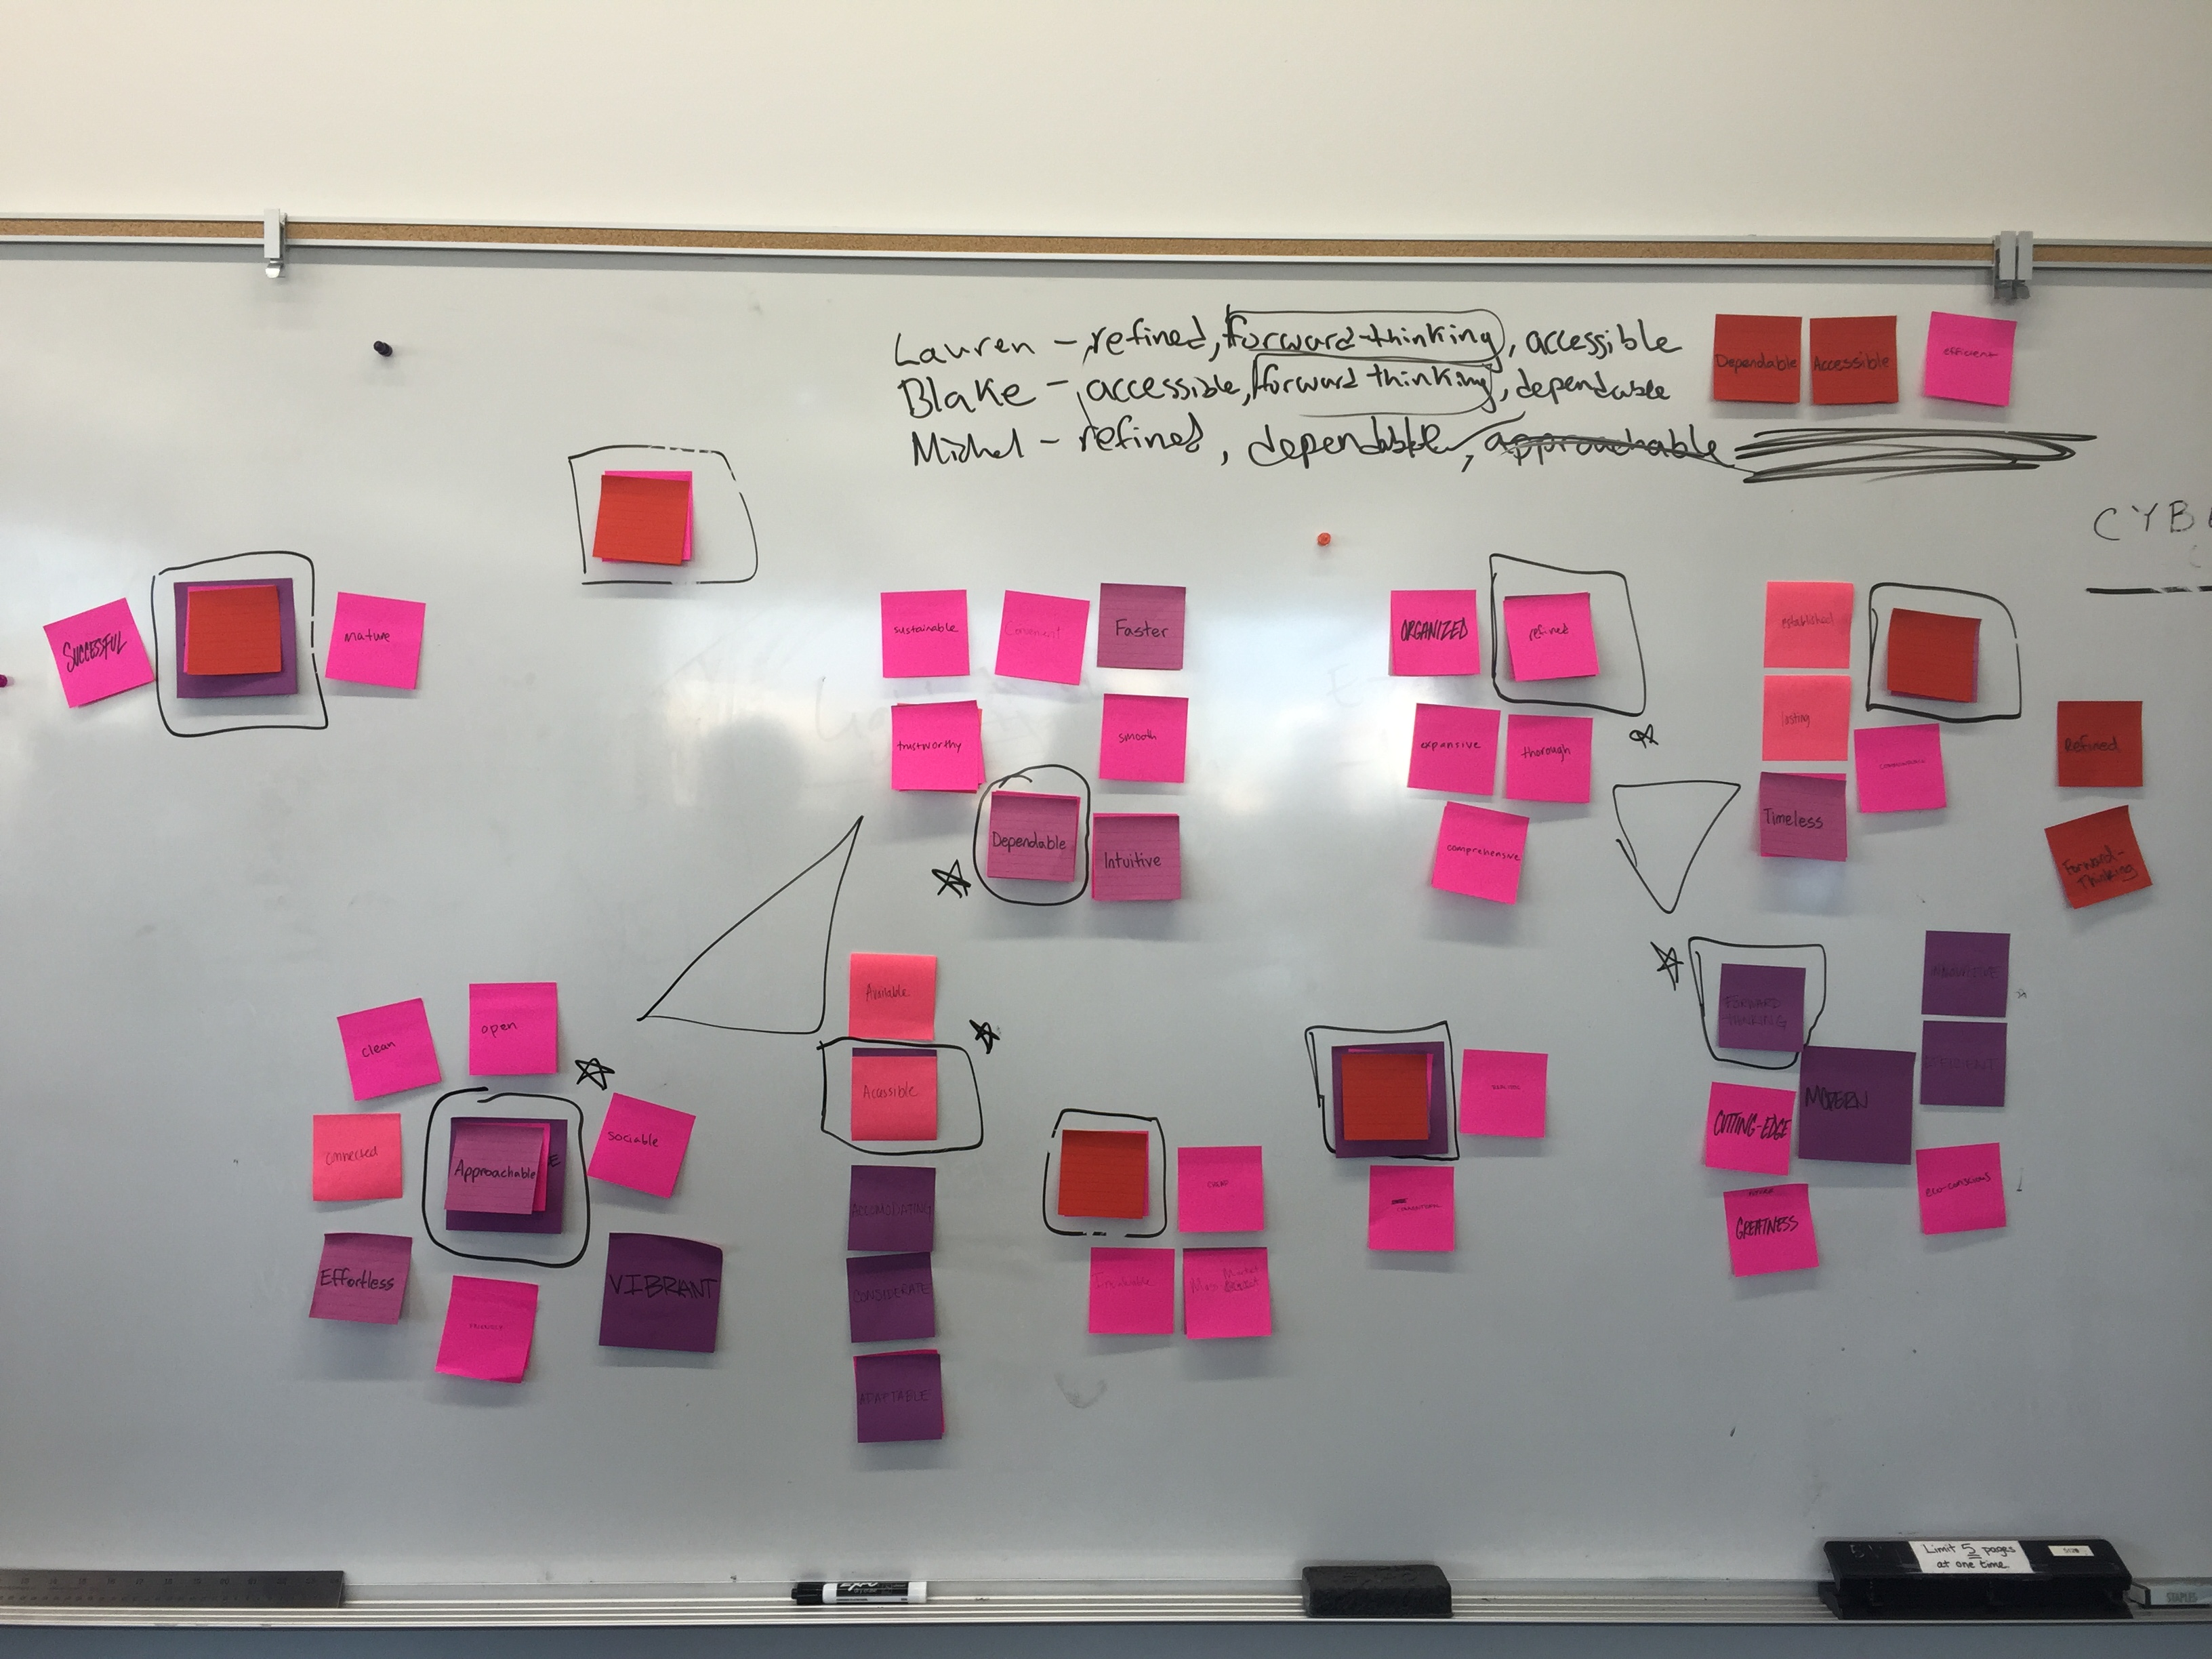 Lauren - refined, forward-thinking, accessible
Blake - accessible, forward thinking, dependable
Michel - refined, dependable, approachable
Dependable
Accessible
efficient
CYB
SUCCESSFUL
mature
sustainable
Convenient
Faster
trustworthy
smooth
Dependable
Intuitive
ORGANIZED
refined
expansive
thorough
comprehensive
established
lasting
Timeless
Refined
Forward-
Thinking
clean
open
connected
Approachable
sociable
Effortless
VIBRANT
Available
Accessible
ACCOMODATING
CONSIDERATE
ADAPTABLE
Invaluable
Mass Market
FORWARD
THINKING
INNOVATIVE
EFFICIENT
MODERN
CUTTING-EDGE
GREATNESS
eco-conscious
Limit 5 pages
at one time.
STAPLES